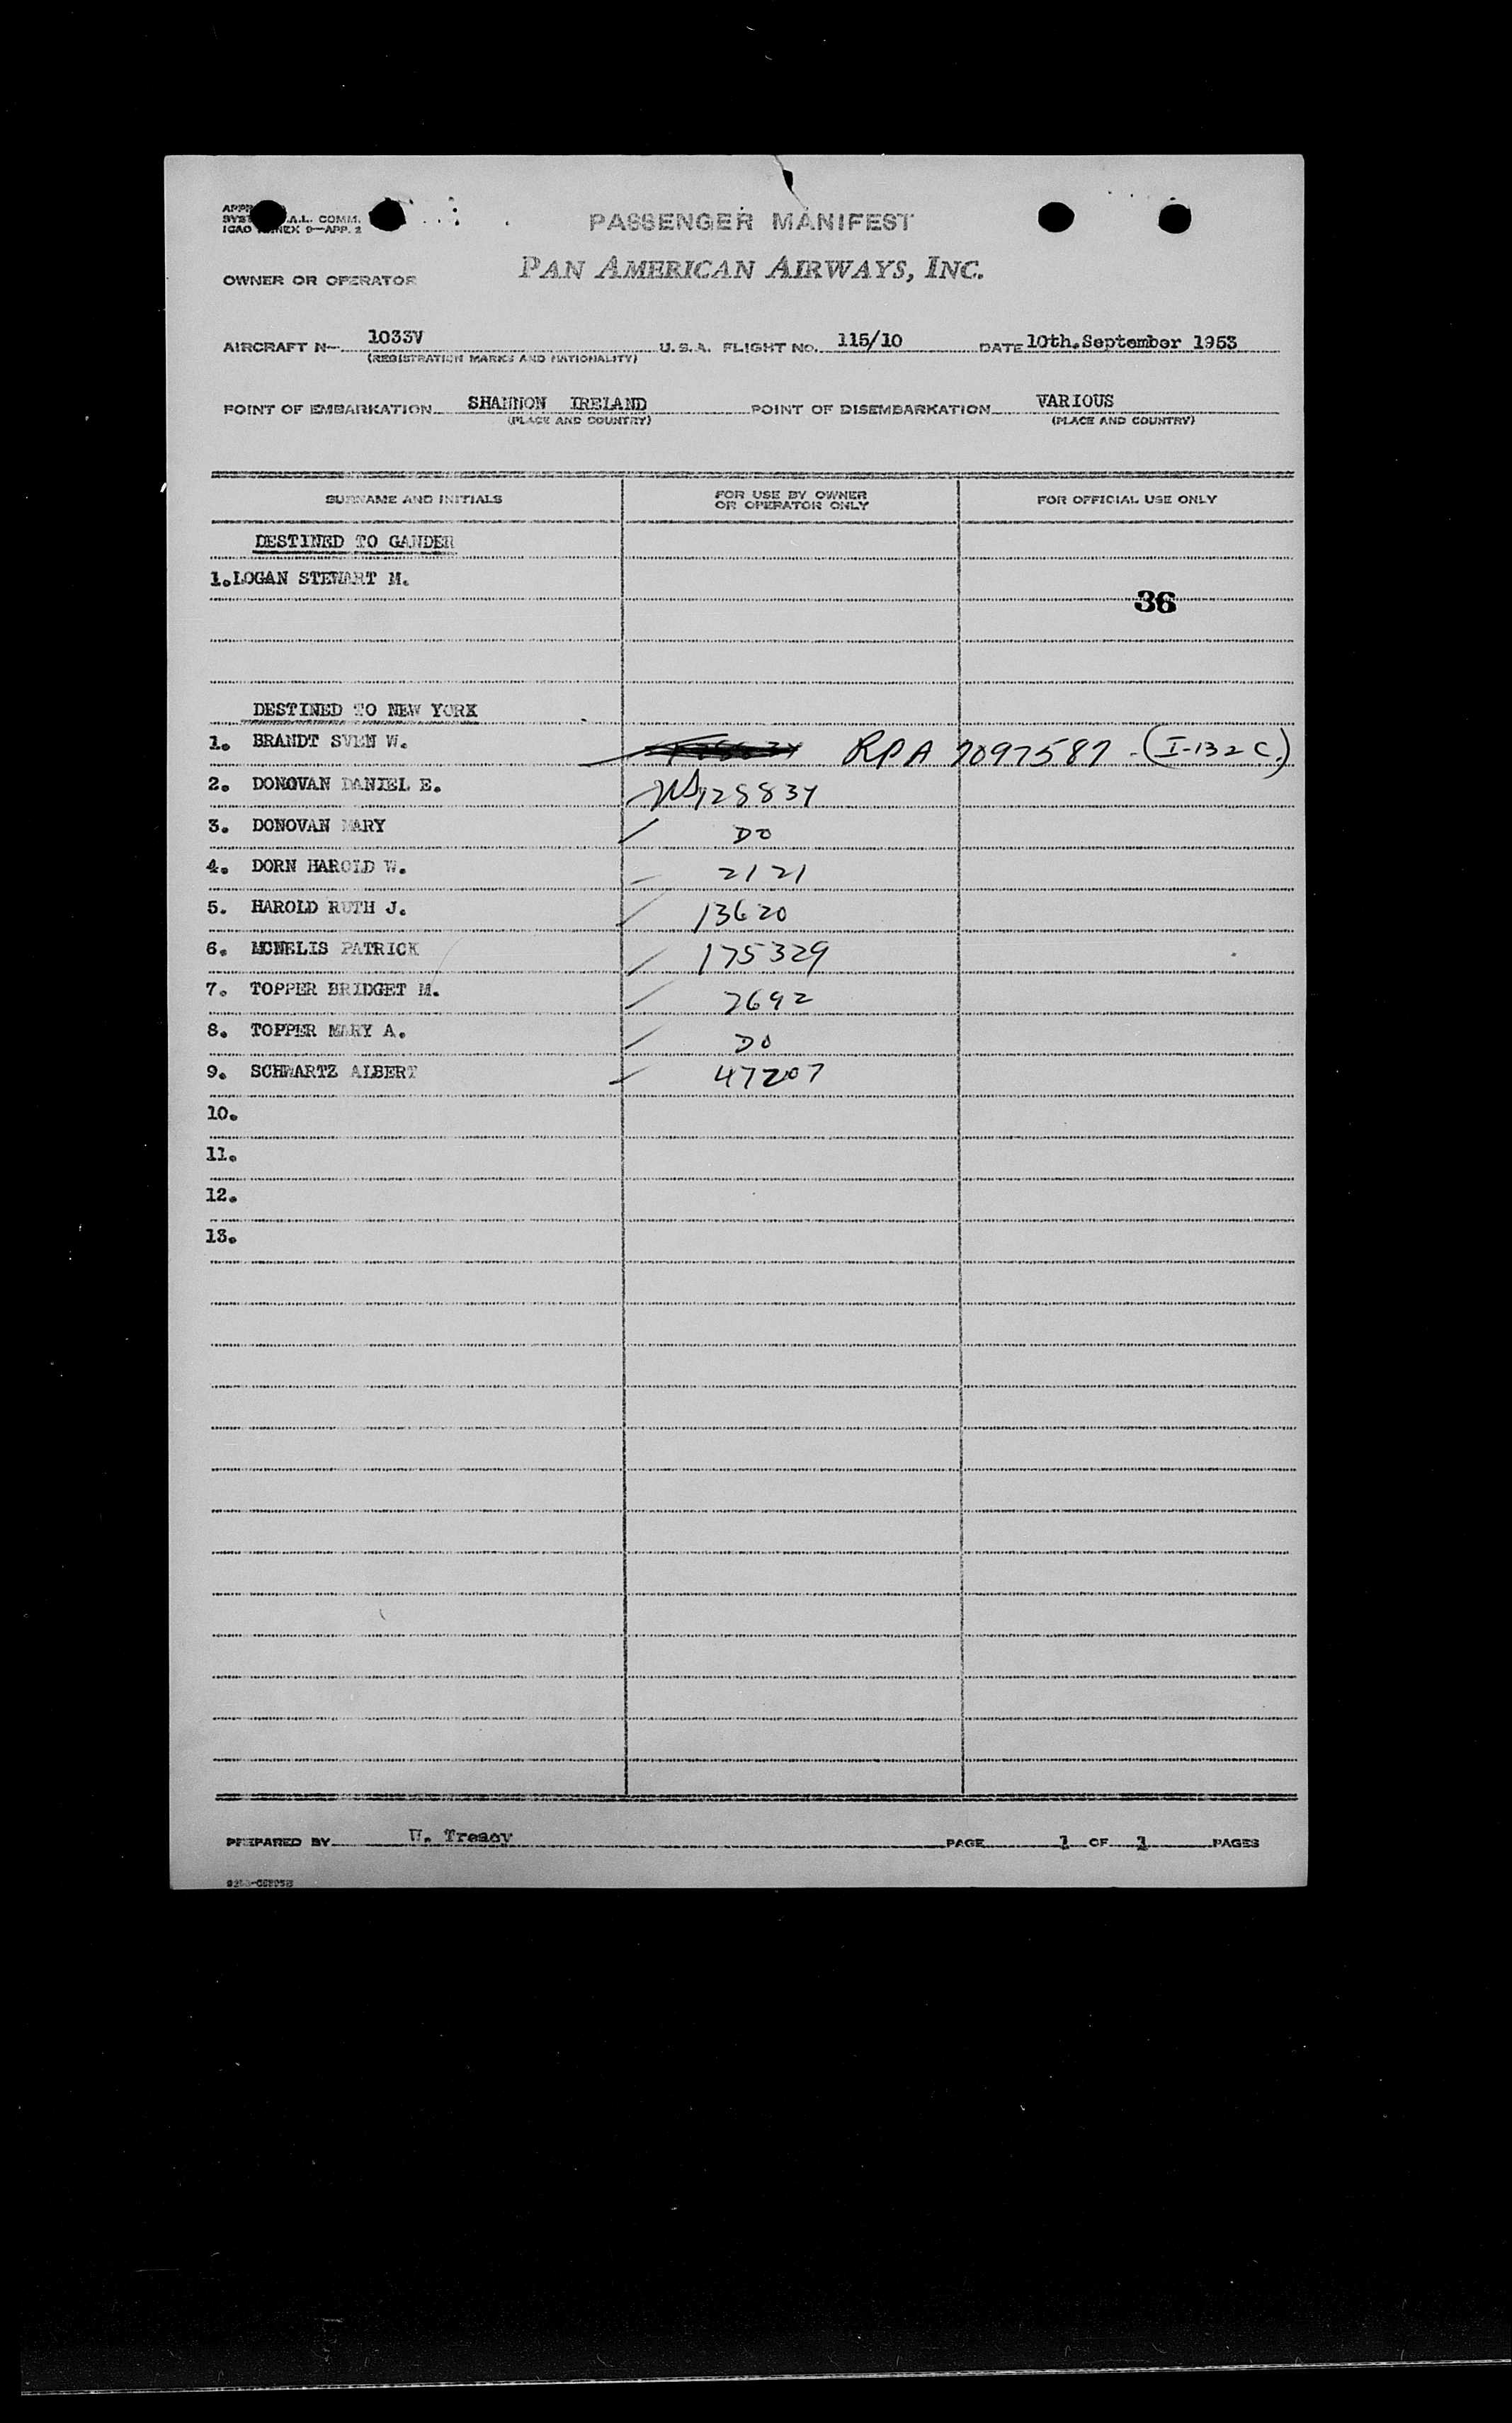 PASSENGER MANIFEST
A.L. COMM.
ICAO ANNEX 9—APP. 2
PAN AMERICAN AIRWAYS, INC.
OWNER OR OPERATOR
AIRCRAFT N— 1033V U.S.A. FLIGHT NO. 115/10 DATE 10th.September 1953
(REGISTRATION MARKS AND NATIONALITY)
POINT OF EMBARKATION SHANNON IRELAND POINT OF DISEMBARKATION VARIOUS
(PLACE AND COUNTRY) (PLACE AND COUNTRY)
SURNAME AND INITIALS FOR USE BY OWNER OR OPERATOR ONLY FOR OFFICIAL USE ONLY
DESTINED TO GANDER
1.LOGAN STEWART M.
36
DESTINED TO NEW YORK
1. BRANDT SVEN W. RPA 7097587 - (I-132C.)
2. DONOVAN DANIEL E.
3. DONOVAN MARY DO
4. DORN HAROLD W. 2121
5. HAROLD RUTH J. 13620
6. MCNELIS PATRICK 175329
7. TOPPER BRIDGET M. 7692
8. TOPPER MARY A. DO
9. SCHWARTZ ALBERT 47207
10.
11.
12.
13.
PREPARED BY Treacy PAGE 1 OF 1 PAGES